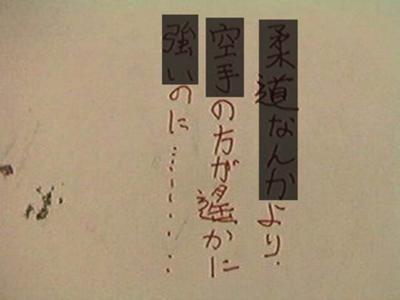 柔道なんかより.
空手の方が遙かに
強いのに………